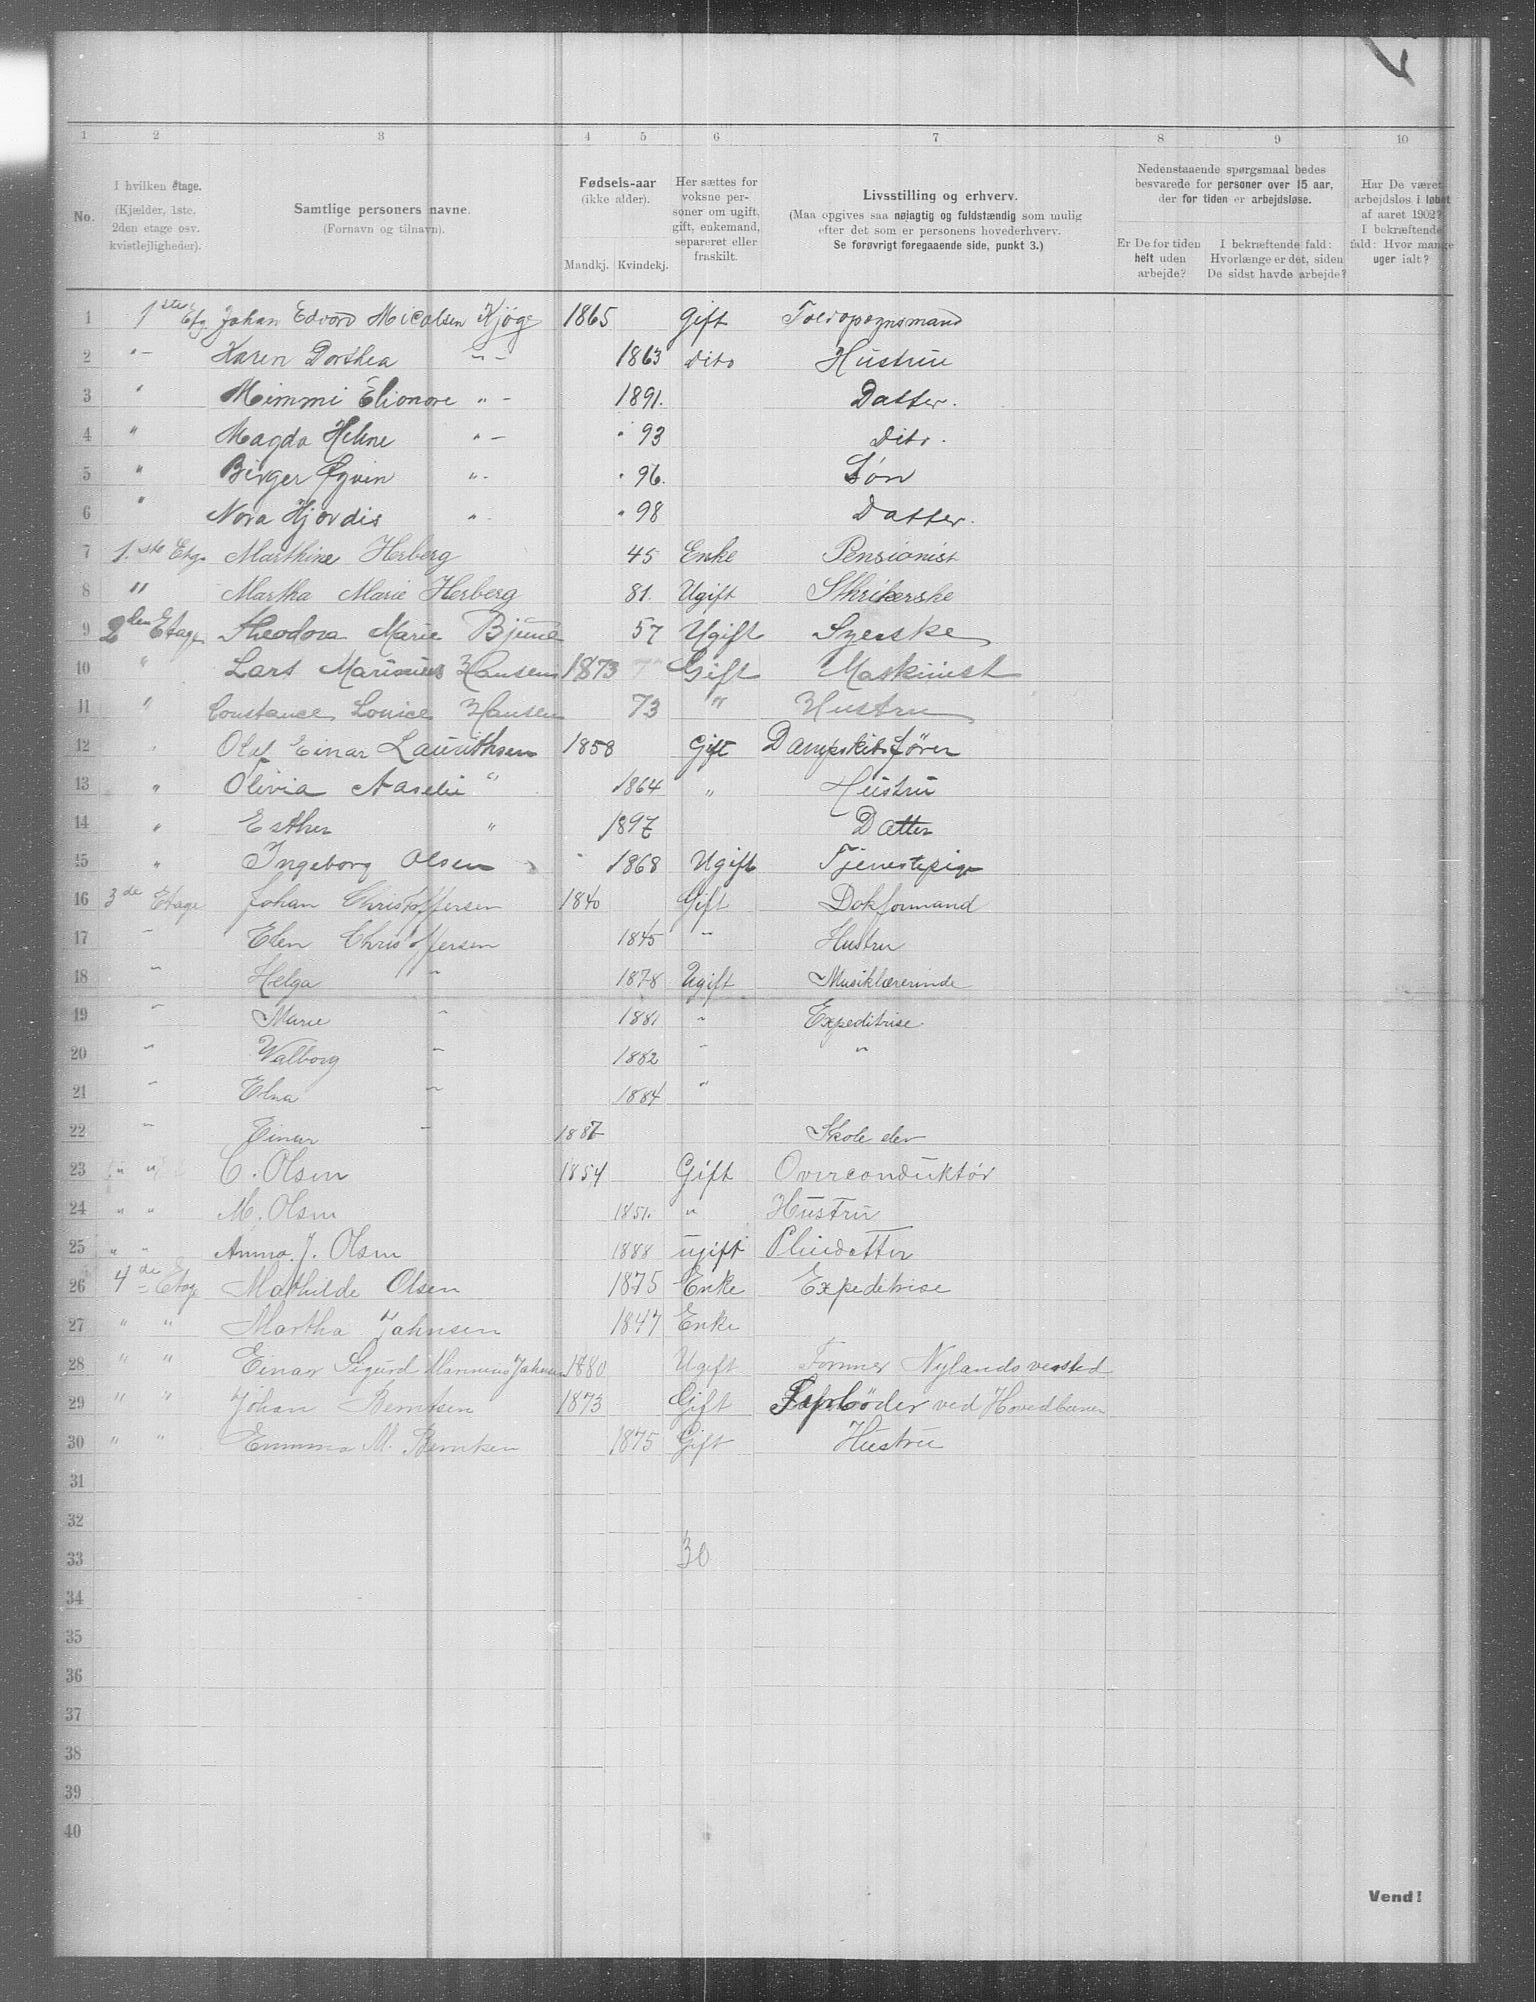 1 2 3 4 5 6 7 8 9 10
No.
I hvilken etage.
(Kjælder, 1ste.
2den etage osv.
kvistlejligheder).
Samtlige personers navne.
(Fornavn og tilnavn).
Fødsels-aar
(ikke alder).
Mandkj. Kvindekj.
Her sættes for
voksne per-
soner om ugift,
gift, enkemand,
separeret eller
fraskilt.
Livsstilling og erhverv.
(Maa opgives saa nøiagtig og fuldstændig som mulig
efter det som er personens hovederhverv.
Se forøvrigt foregaaende side, punkt 3.)
Nedenstaaende spørgsmaal bedes
besvarede for personer over 15 aar,
der for tiden er arbejdsløse.
Er De for tiden
helt uden
arbejde?
I bekræftende fald:
Hvorlænge er det, siden
De sidst havde arbejde?
Har De været
arbejdsløs i løbet
af aaret 1902?
I bekræftende
fald: Hvor mange
uger ialt?
1 1ste Etg Johan Edvard Micalsen Kjøge 1865 Gift
2 " - Karen Dorthea " - 1863 Dito Hustru
3 " Mimmi Elionore " - 1891. Datter.
4 " Magda Helene " - " 93 Dito.
5 " Birger Øgvin " - " 96. Søn
6 " Nora Hjørdis " - " 98 Datter.
7 1.ste Etg. Marthine Herberg 45 Enke Pensionist
8 " Martha Marie Herberg 81. Ugift
9 2den Etage Theodora Marie 57 Ugift Syerske
10 " Lars Marinius Hansen 1873 Gift Maskinist
11 " Constance Louice Hansen 73 " Hustru
12 " Olaf Einar Laurithsen 1858 Gift Dampskibsfører
13 " Olivia " 1864 " Hustru
14 " Esther " 1897 Datter
15 " Ingeborg Olsen 1868 Ugift Tjenestepige
16 3de Etage Johan Christoffersen 1840 Gift Dokformand
17 " Elen Christoffersen 1845 " Hustru
18 " Helga " 1878 Ugift Musiklærerinde
19 " Marie " 1881 " Expeditrise
20 " Valborg " 1882 " "
21 " Elna " 1884 "
22 " Einar " 1887 Skole elev
23 " " C. Olsen 1854 Gift Overconduktør
24 " " M. Olsen 1851. " Hustru
25 " " Anna J. Olsen 1888 ugift Pleiedatter
26 4de Etage Mathilde Olsen 1875 Enke Expeditrise
27 " " Martha Jahnsen 1847 Enke
28 " " Einar Sigurd Marinius Jahnsen 1880 Ugift Former Nylands versted
29 " " Johan Berntsen 1873 Gift ved Hovedbanen
30 " " Emma M. Berntsen 1875 Gift Hustru
31
32
33 30
34
35
36
37
38
39
40
Vend!